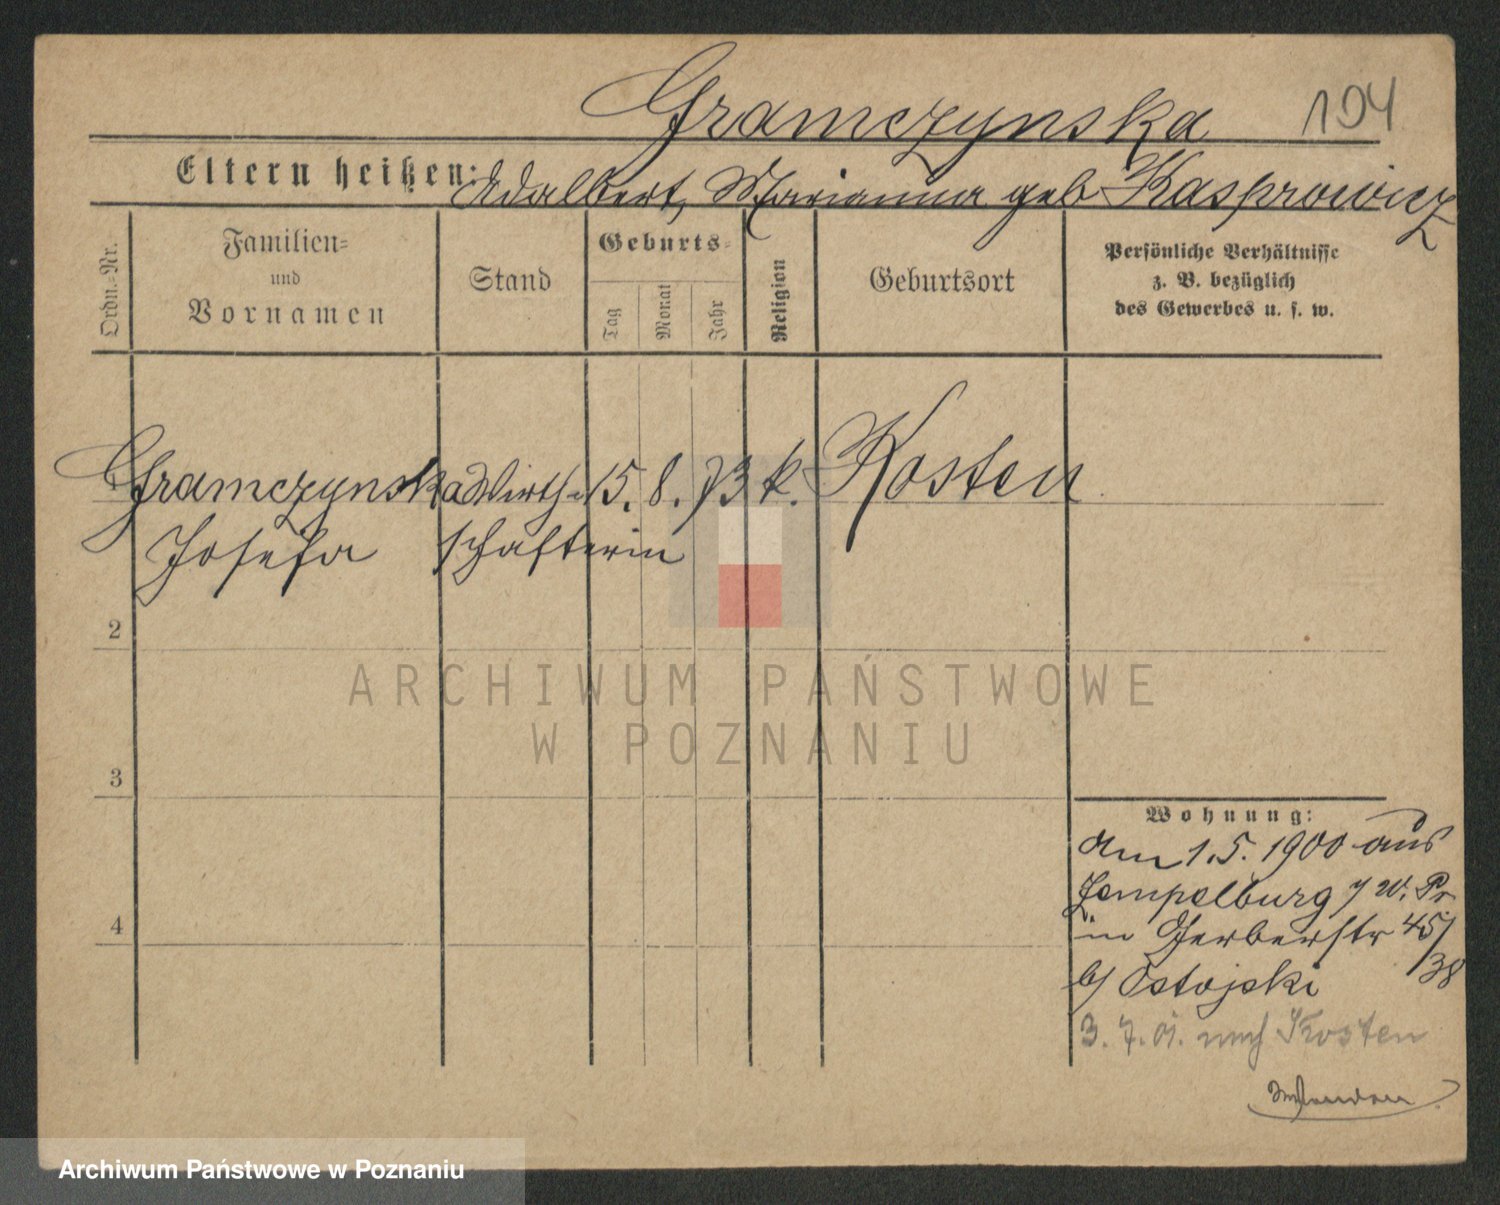 Gramczynska 104
Eltern heißen: Adalbert, Marianna geb Kasprowicz
Ordn.-Nr.
Familien=
und
Vornamen
Stand
Geburts=
Tag
Monat
Jahr
Religion
Geburtsort
Persönliche Verhältnisse
z. B. bezüglich
des Gewerbes u. s. w.
Gramczynska Wirth= 15. 8. 73 k. Kosten
Josefa schafterin
2
3
4
Wohnung:
Am 1.5. 1900 aus
Zempelburg W. Pr
in Gerberstr 45/
/38
b/ Ostojski
3. 7. 01. nach Kosten
ARCHIWUM PAŃSTWOWE
W POZNANIU
Archiwum Państwowe w Poznaniu